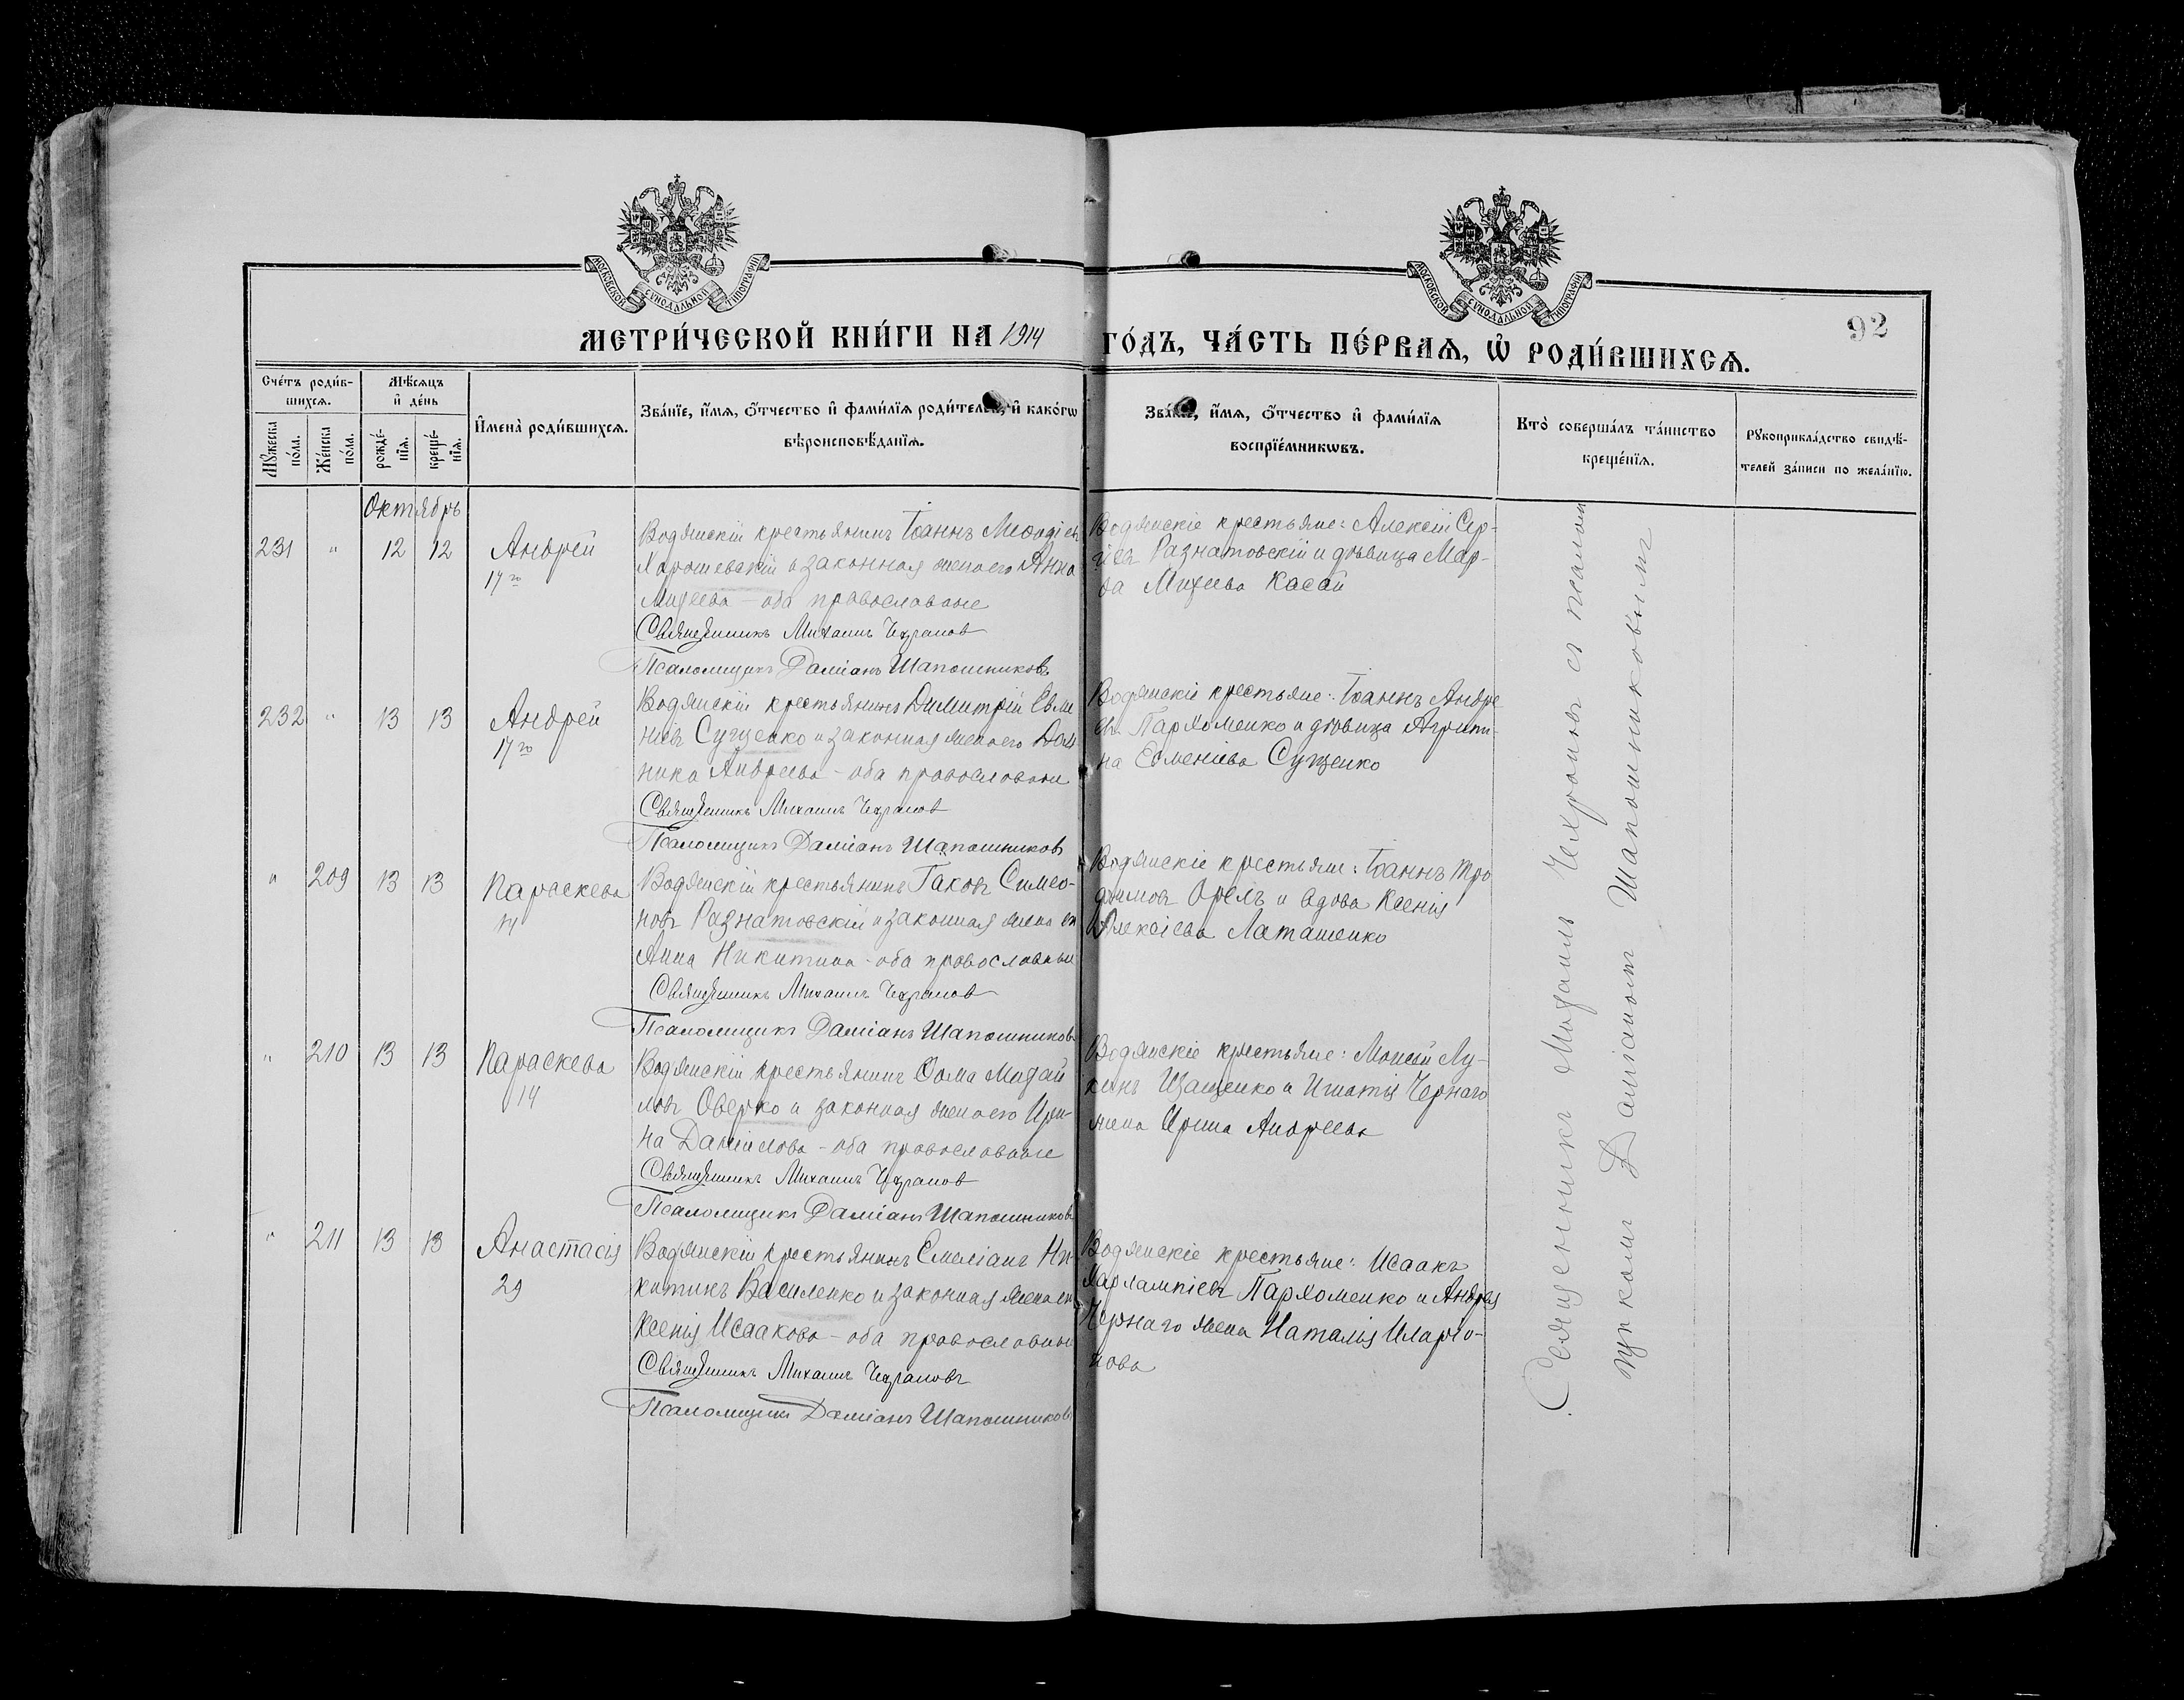 МОСКОВСКОЙ СУНОДАЛЬНОЙ ТИПОГРАФІИ
МОСКОВСКОЙ СУНОДАЛЬНОЙ ТИПОГРАФІИ
92
МЕТРИ́ЧЕСКОЙ КНИ́ГИ НА 1914 ГО́ДЪ, ЧА́СТЬ ПЕ́РВАѦ, Ѡ҆ РОДИ́ВШИХСѦ.
Сче́тъ роди́в-
шихсѧ.
Мꙋ́жеска по́ла.
Же́нска по́ла.
Мѣ́сѧцъ
и҆ де́нь
рожде́-
нїѧ.
креще́-
нїѧ.
И҆мена̀ роди́вшихсѧ.
Зва́нїе, и҆́мѧ, ѻ҆́тчество и҆ фами́лїѧ роди́телей, и҆ како́гѡ
вѣроисповѣ́данїѧ.
Зва́нїе, и҆́мѧ, ѻ҆́тчество и҆ фами́лїѧ
воспрїе́мникѡвъ.
Кто̀ соверша́лъ та́инство
креще́нїѧ.
Рꙋкоприкла́дство свидѣ́-
телей за́писи по жела́нїю.
Октябрь
231 " 12 12 Андрей
17го
Водянскій крестьянинъ Іоаннъ Меѳодіевъ
Харошевскій и законная жена его Анна
Михеева - оба православные
Священникъ Михаилъ Чехрановъ
Псаломщикъ Даміанъ Шапошниковъ
Водянскіе крестьяне: Алексій Сер-
гіевъ Разнатовскій и дѣвица Мар-
ѳа Михеева Касай
232 " 13 13 Андрей
17го
Водянскій крестьянинъ Димитрій Евме
ніевъ Сущенко и законная жена его Дом
ника Андреева - оба православные
Священникъ Михаилъ Чехрановъ
Псаломщикъ Даміанъ Шапошниковъ
Водянскіе крестьяне: Іоаннъ Андре
евъ Пархоменко и дѣвица Агрипи-
на Евменіева Сущенко
" 209 13 13 Параскева
14
Водянскій крестьянинъ Іаковъ Симео-
новъ Разнатовскій и законная жена его
Анна Никитина - оба православные
Священникъ Михаилъ Чехрановъ
Псаломщикъ Даміанъ Шапошниковъ
Водянскіе крестьяне: Іоаннъ Тро
фимовъ Орелъ и вдова Ксенія
Алексіева Латашенко
" 210 13 13 Параскева
14
Водянскій крестьянинъ Ѳома Михаи
ловъ Оверко и законная жена его Ири-
на Даніилова - оба православные
Священникъ Михаилъ Чехрановъ
Псаломщикъ Даміанъ Шапошниковъ
Водянскіе крестьяне: Моисей Лу-
кинъ Ищенко и Игнатія Чернаго
жена Ирина Андреева
" 211 13 13 Анастасія
29
Водянскій крестьянинъ Емеліанъ Ни-
китинъ Василенко и законная жена его
Ксенія Исаакова - оба православные
Священникъ Михаилъ Чехрановъ
Псаломщикъ Даміанъ Шапошниковъ
Водянскіе крестьяне: Исаакъ
Харлампіевъ Пархоменко и Андрея
Чернаго жена Наталія Иларіо-
нова
Священникъ Михаилъ Чехрановъ съ псалом
щикомъ Даміаномъ Шапошниковымъ